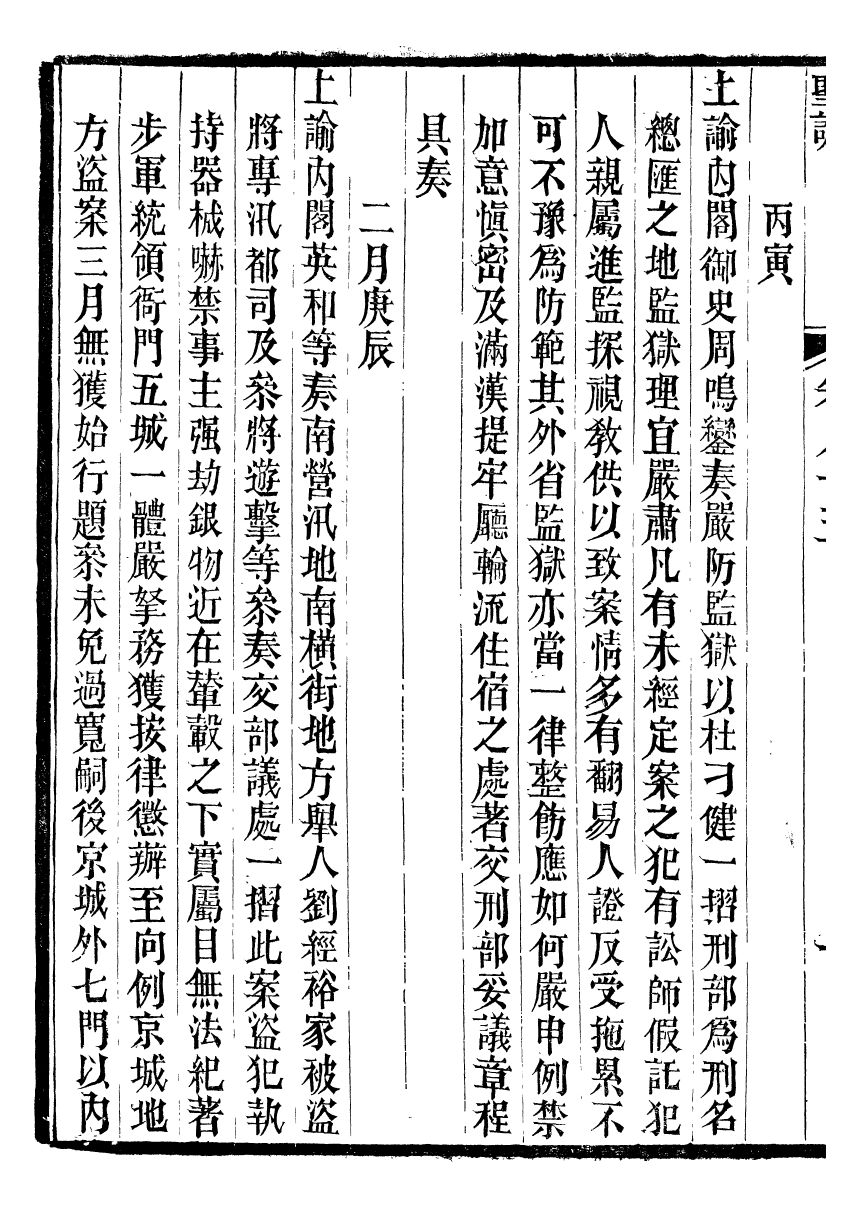 聖訓
丙寅
上諭內閣御史周鳴鑾奏嚴防監獄以杜刁健一摺刑部爲刑名
總匯之地監獄理宜嚴肅凡有未經定案之犯有訟師假託犯
人親屬進監探視敎供以致案情多有翻易人證反受拖累不
可不豫爲防範其外省監獄亦當一律整飭應如何嚴申例禁
加意愼密及滿漢提牢廳輪流住宿之處著交刑部妥議章程
具奏
二月庚辰
上諭內閣英和等奏南營汛地南橫街地方舉人劉經裕家被盜
將專汛都司及叅將遊擊等叅奏交部議處一摺此案盜犯執
持器械嚇禁事主强劫銀物近在輦轂之下實屬目無法紀著
步軍統領衙門五城一體嚴拏務獲按律懲辦至向例京城地
方盜案三月無獲始行題叅未免過寬嗣後京城外七門以內